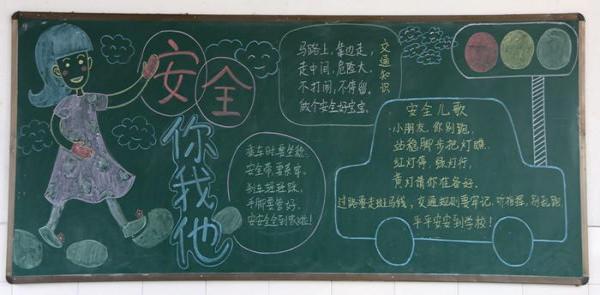 安全
你我他
交通知识
马路上,靠边走,
走中间,危险大.
不打闹,不停留,
做个安全好宝宝.
乘车时要坐稳,
安全带要系牢,
手脚要管好.
安安全全到家啦!
安全儿歌
小朋友,你别跑,
站稳脚步把灯瞧.
红灯停,绿灯行,
黄灯请你准备好.
过路要走斑马线,交通规则要牢记,听指挥,别乱跑,
平平安安到学校!